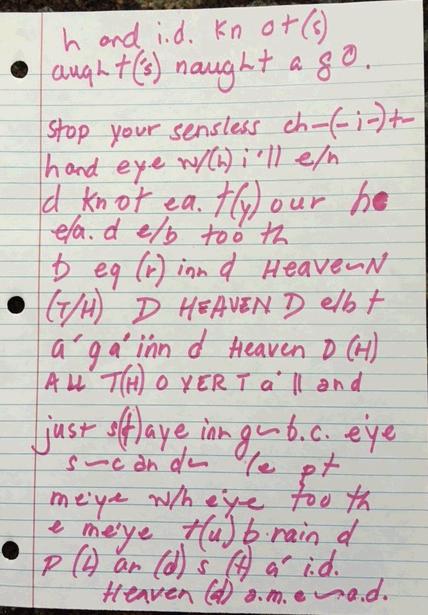 h and i.d. kn ot(s)
aught('s) naught a g o.
stop your sensless ch-(-i-)t-
hand eye w/(h) i'll e/n
d knot ea. t(y) our he
e/a. d e/b too th
b eq (r) inn d HeaveN
(T/H) D HEAVEN D e/b t
a' g a' inn d Heaven D (H)
ALL T(H) OVER T a'll and
just s(t)aye inn g b.c. e'ye
me'ye w/h e'ye too th
e me'ye t(u) b.rain d
p (l) an (d) s (t) a' i.d.
Heaven (d) a.m.e a.d.